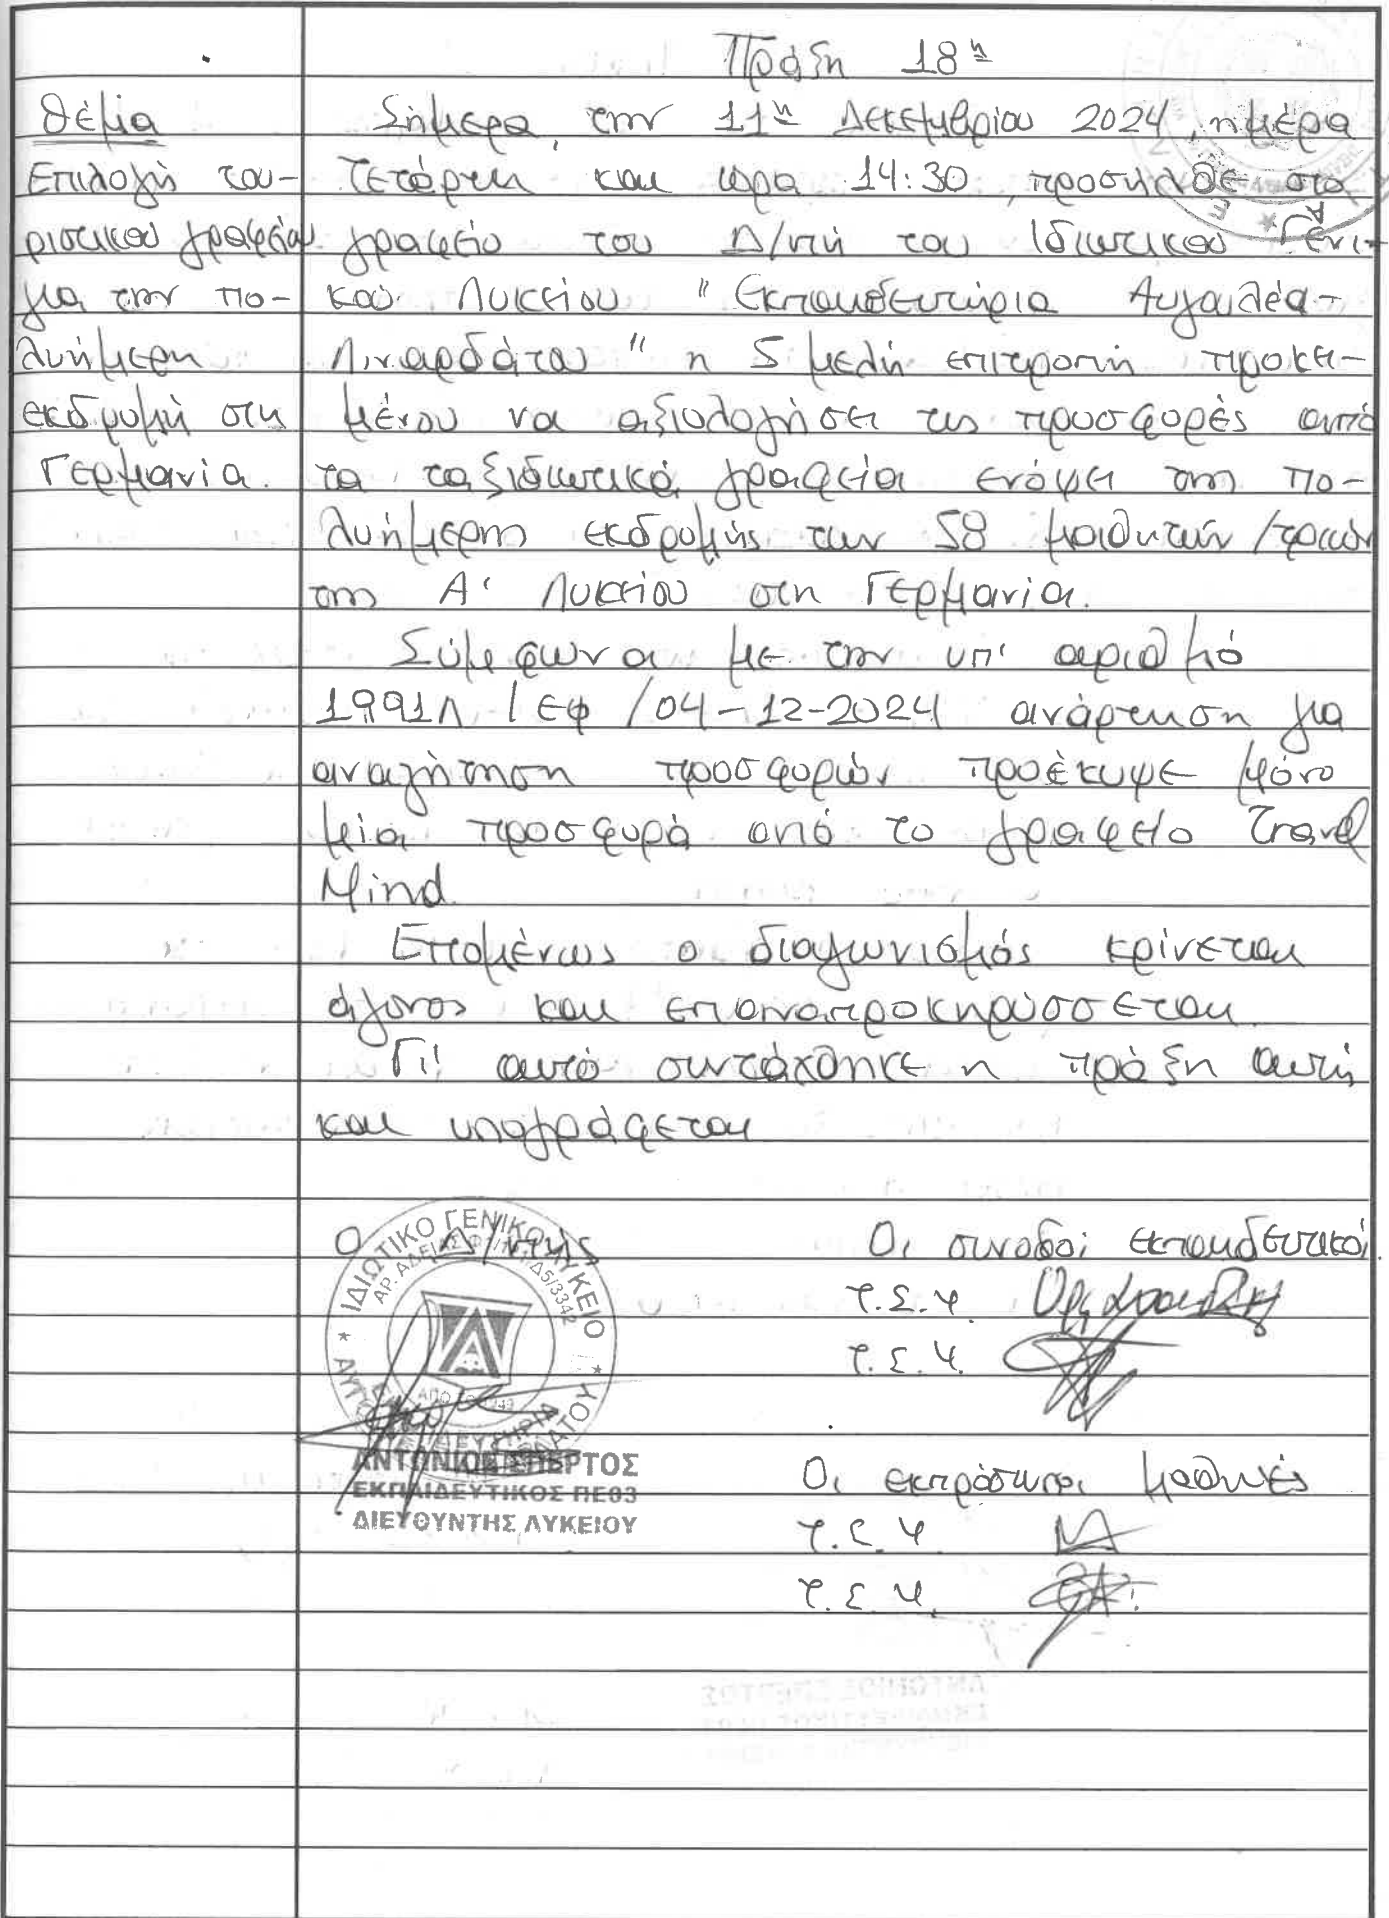 Πράξη 18η
Θέμα
Επιλογή του-
ριστικού γραφείου
για την πο-
λυήμερη
εκδρομή στη
Γερμανία.
Σήμερα, την 11η Δεκεμβρίου 2024, ημέρα
Τετάρτη και ώρα 14:30, προσήλθε στο
γραφείο του Δ/ντή του Ιδιωτικού Γενι-
κού Λυκείου "Εκπαιδευτήρια Αυγουλέα-
Λιναρδάτου" η 5 μελή επιτροπή προκει-
μένου να αξιολογήσει τις προσφορές από
τα ταξιδιωτικά γραφεία ενόψει της πο-
λυήμερης εκδρομής των 58 μαθητών/τριών
της Α' Λυκείου στη Γερμανία.
Σύμφωνα με την υπ' αριθμό
1991Λ/ΕΦ/04-12-2024 ανάρτηση για
αναζήτηση προσφορών προέκυψε μόνο
μία προσφορά από το γραφείο Travel
Mind
Επομένως ο διαγωνισμός κρίνεται
άγονος και επαναπροκηρύσσεται
Γι' αυτό συντάχθηκε η πράξη αυτή
και υπογράφεται
Ο Δ/ντής
ΙΔΙΩΤΙΚΟ ΓΕΝΙΚΟ ΛΥΚΕΙΟ
ΑΝΤΩΝΙΟΣ ΣΠΕΡΤΟΣ
ΕΚΠΑΙΔΕΥΤΙΚΟΣ ΠΕ03
ΔΙΕΥΘΥΝΤΗΣ ΛΥΚΕΙΟΥ
Οι συνοδοί εκπαιδευτικοί
Τ.Σ.Υ.
Τ.Σ.Υ.
Οι εκπρόσωποι μαθητές
Τ.Σ.Υ.
Τ.Σ.Υ.